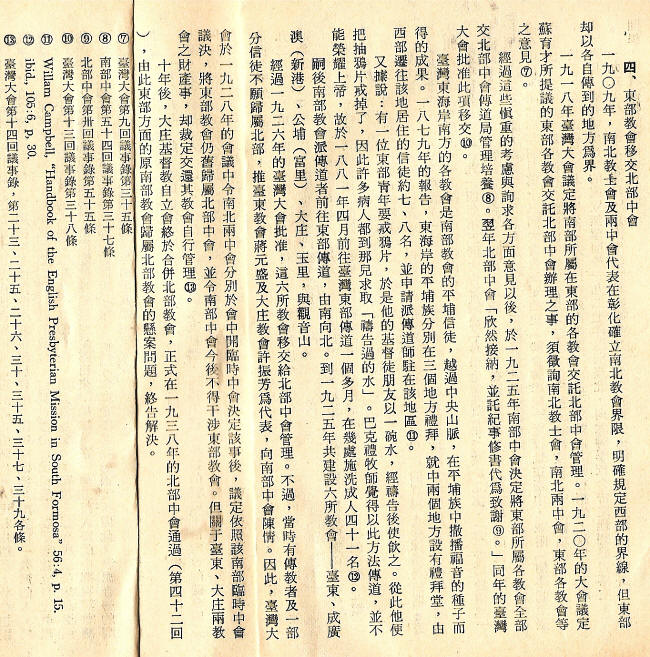 四、東部教會移交北部中會
一九〇九年，南北教士會及兩中會代表在彰化確立南北教會界限，明確規定西部的界線，但東部
却以各自傳到的地方爲界。
一九一八年臺灣大會議定將南部所屬在東部的各教會交託北部中會管理。一九二〇年的大會議定
蘇育才所提議的東部各教會交託北部中會辦理之事，須徵詢南北教士會，南北兩中會，東部各教會等
之意見⑦。
經過這些愼重的考慮與詢求各方面意見以後，於一九二五年南部中會決定將東部所屬各教會全部
交北部中會傳道局管理培養⑧。翌年北部中會「欣然接納，並託紀事修書代爲致謝⑨。」同年的臺灣
大會批准此項移交⑩。
臺灣東海岸南方的各教會是南部教會的平埔信徒，越過中央山脈，在平埔族中撒播福音的種子而
得的成果。一八七九年的報告，東海岸的平埔族分別在三個地方禮拜，就中兩個地方設有禮拜堂，由
西部遷往該地居住的信徒約七、八名，並申請派傳道師駐在該地區⑪。
又據說：有一位東部青年要戒鴉片，於是他的基督徒朋友以一碗水，經禱告後使飲之。從此他便
把抽鴉片戒掉了，因此許多病人都到那兒求取「禱告過的水」。巴克禮牧師覺得以此方法傳道，並不
能榮耀上帝，故於一八八一年四月前往臺灣東部傳道一個多月，在幾處施洗成人四十一名⑫。
嗣後南部教會派傳道者前往東部傳道，由南向北。到一九二五年共建設六所教會——臺東、成廣
澳（新港）、公埔（富里）、大庄、玉里，與觀音山。
經過一九二六年的臺灣大會批准，這六所教會移交給北部中會管理。不過，當時有傳教者及一部
分信徒不願歸屬北部，推臺東教會將元盛及大庄教會許振芳爲代表，向南部中會陳情。因此，臺灣大
會於一九二八年的會議中令南北兩中會分別於會中開臨時中會決定該事後，議定依照該南部臨時中會
議決，將東部教會仍舊歸屬北部中會，並令南部中會今後不得干涉東部教會。但關于臺東、大庄兩教
會之財產事，却裁定交還其教會自行管理⑬。
十年後，大庄基督教自立會終於合併北部教會，正式在一九三八年的北部中會通過（第四十二回
），由此東部方面的原南部教會歸屬北部教會的懸案問題，終告解決。
⑦ 臺灣大會第九回議事錄第三十五條
⑧ 南部中會第五十四回議事錄第三十七條
⑨ 北部中會第卅回議事錄第五十五條
⑩ 臺灣大會第十三回議事錄第三十八條
⑪ Willam Campbell, "Handbook of the English Presbyterian Mission in South Formosa" 56:4, p. 15.
⑫ ibid, 105:6, p. 30.
⑬ 臺灣大會第十四回議事錄，第二十三、二十五、二十六、三十、三十五、三十七、三十九各條。